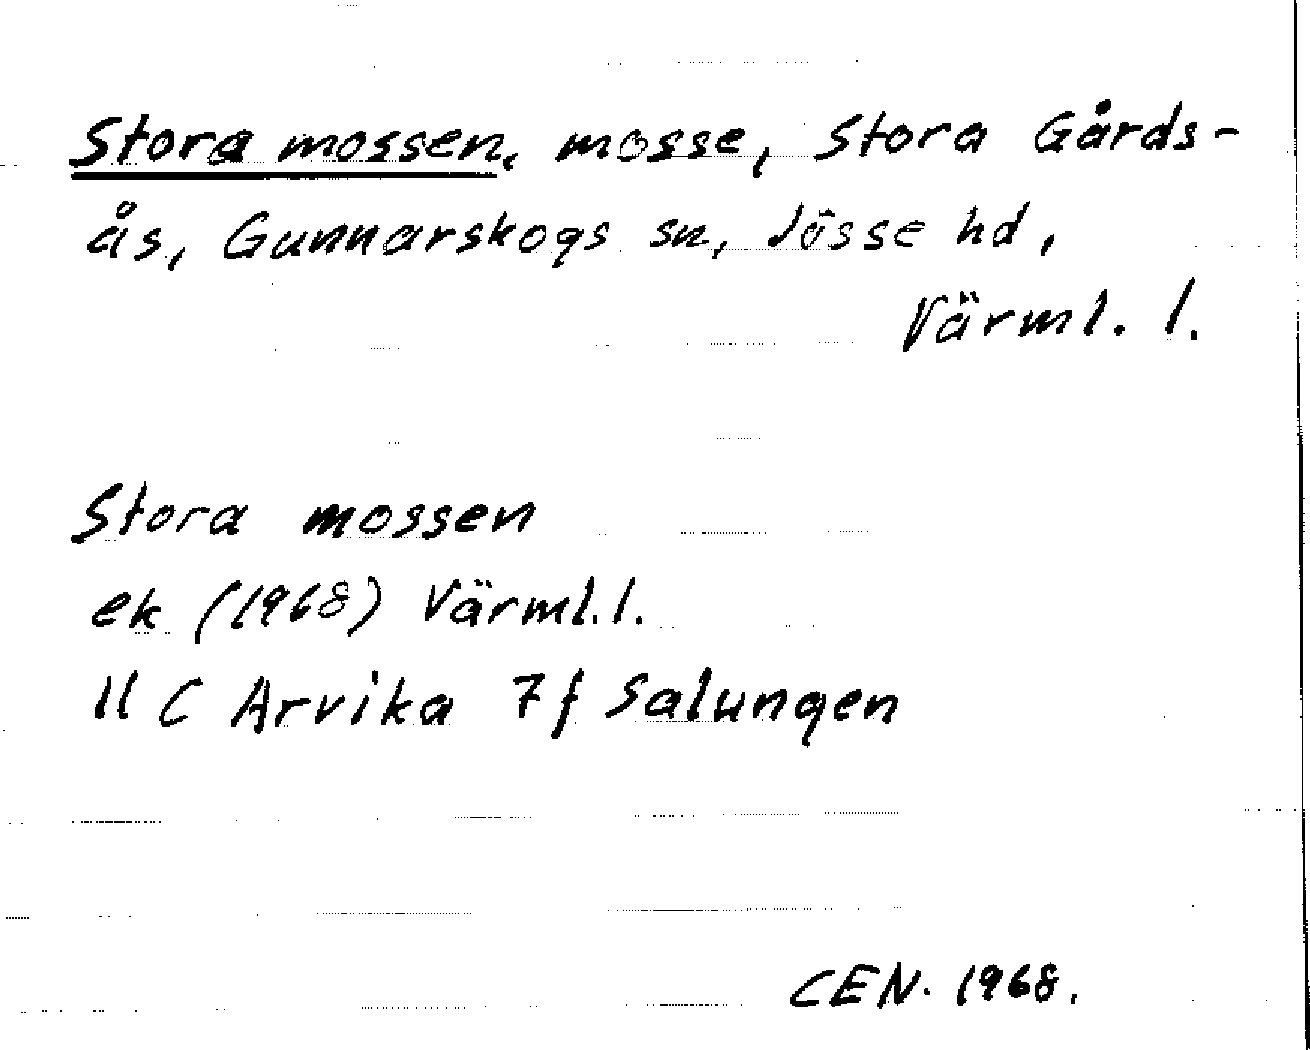 Stora mossen, mosse, Stora Gårds-
ås, Gunnarskogs sn, Jösse hd,
Värml. l.
Stora mossen
ek (1968) Värml. l.
11 C Arvika 7f Salungen
CEN. 1968.